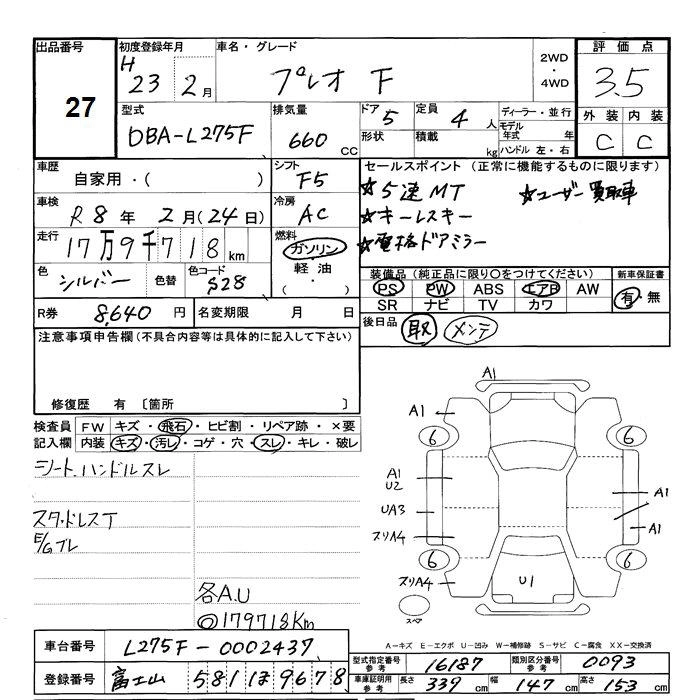 出品番号
27
初度登録年月
H 23 2月
車名・グレード
プレオ F
2WD
・
4WD
評価点
3.5
外装 内装
C C
型式
DBA-L275F
排気量
660 CC
ドア 5
形状
定員 4 人
積載 kg
ディーラー・並行
モデル年式 年
ハンドル 左・右
車歴
自家用・( )
シフト
F5
車検
R8年 2月(24日)
冷房
AC
走行
17万9千718km
燃料
ガソリン
軽油
( ・ )
色 シルバー
色替
色コード S28
R券 8,640円
名変期限 月 日
セールスポイント(正常に機能するものに限ります)
☆5速MT ☆ユーザー買取車
☆キーレスキー
☆電格ドアミラー
装備品(純正品に限り○をつけてください)
PS PW ABS エアB AW
SR ナビ TV カワ
新車保証書
有・無
後日品 取 メンテ
注意事項申告欄(不具合内容等は具体的に記入して下さい)
修復歴 有 〔箇所 〕
検査員記入欄
FW キズ・飛石・ヒビ割・リペア跡・×要
内装 キズ・汚レ・コゲ・穴・スレ・キレ・破レ
シート、ハンドルスレ
スタッドレスT
E/Gブレ
各A.U
◎179718Km
A1
A1
6
6
A1
U2
UA3
スリA4
A1
A1
6
6
スリA4
U1
スペア
A－キズ E－エクボ U－凹み W－補修跡 S－サビ C－腐食 XX－交換済
車台番号 L275F-0002437
登録番号 富士山 581 ほ 9678
型式指定番号参考 16187
類別区分番号参考 0093
車庫証明用参考 長さ 339cm 幅 147cm 高さ 153cm